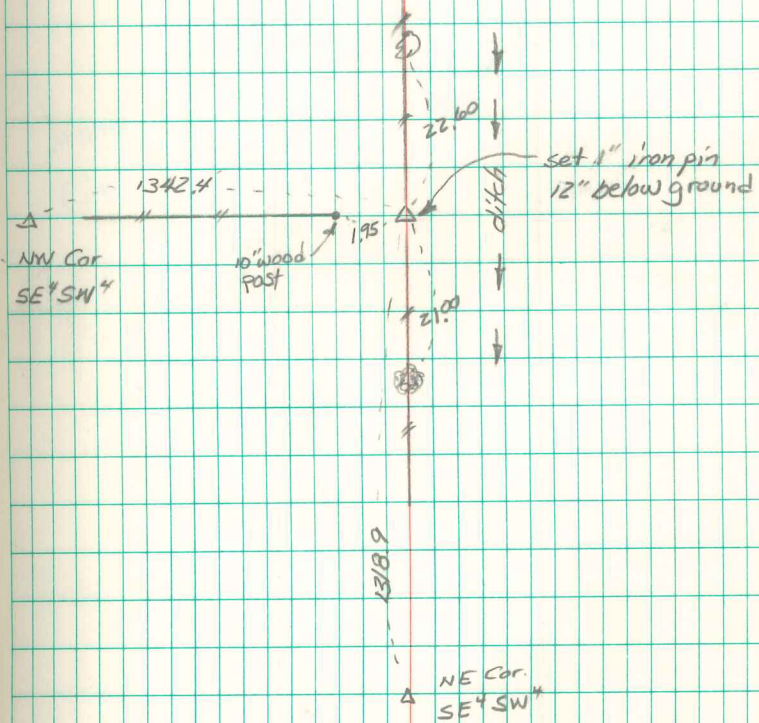 22.60
set 1" iron pin
12" below ground
1342.4
ditch
1.95
NW Cor
SE⁴ SW⁴
10" wood
post
21.00
1318.9
NE Cor.
SE⁴ SW⁴